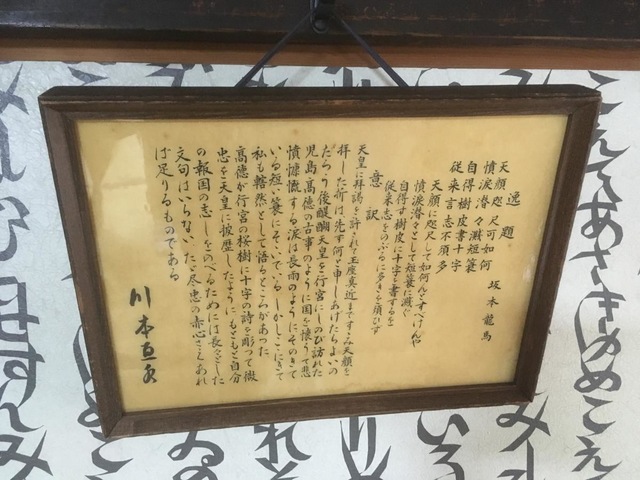 逸題
坂本龍馬
天顔咫尺可如何
憤涙潜々濺短簑
自得樹皮書十字
従来言志不須多
天顔に咫尺して如何をすべけむや
憤涙潜々として短簑に濺ぐ
自得す樹皮に十字を書するを
従来志をのぶるに多きを須ひず
意訳
天皇に拝謁を許されて玉座真近まですすみ天顔を
拝した折は先ず何と申しあげたらよいの
だろう後醍醐天皇を行宮にしのび訪れた
児島高徳の古事のように国を懐うて悲
憤慷慨する涙は長雨のようにそのきて
いる短い簑にそそいでいるしかしここにきて
私も轄然として悟るところがあった
高徳が行宮の桜樹に十字の詩を彫つて微
忠を天皇に披歴したようにもともと自分
の報国の志しをのべるためには長々とした
文句はいらないたゞ尽忠の赤心さえあれ
ば足りるものである
川本直水
こえてあさきゆめ